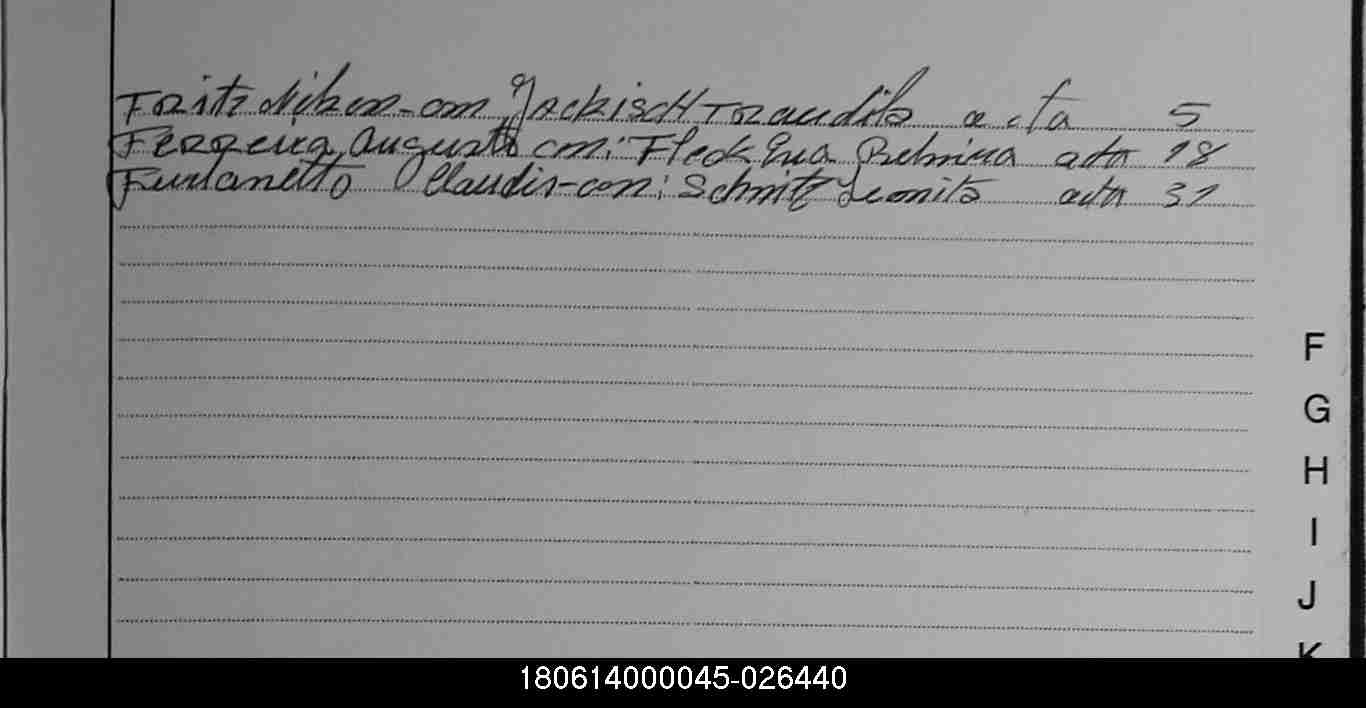 Fritz Nilson-con Jackisch Traudila acta 5
Ferreira, Augusto con: Fleck Eva Belmira acta 18
Furlanetto Claudir-con: Schmitz Leonita acta 31
F
G
H
I
J
K
180614000045-026440